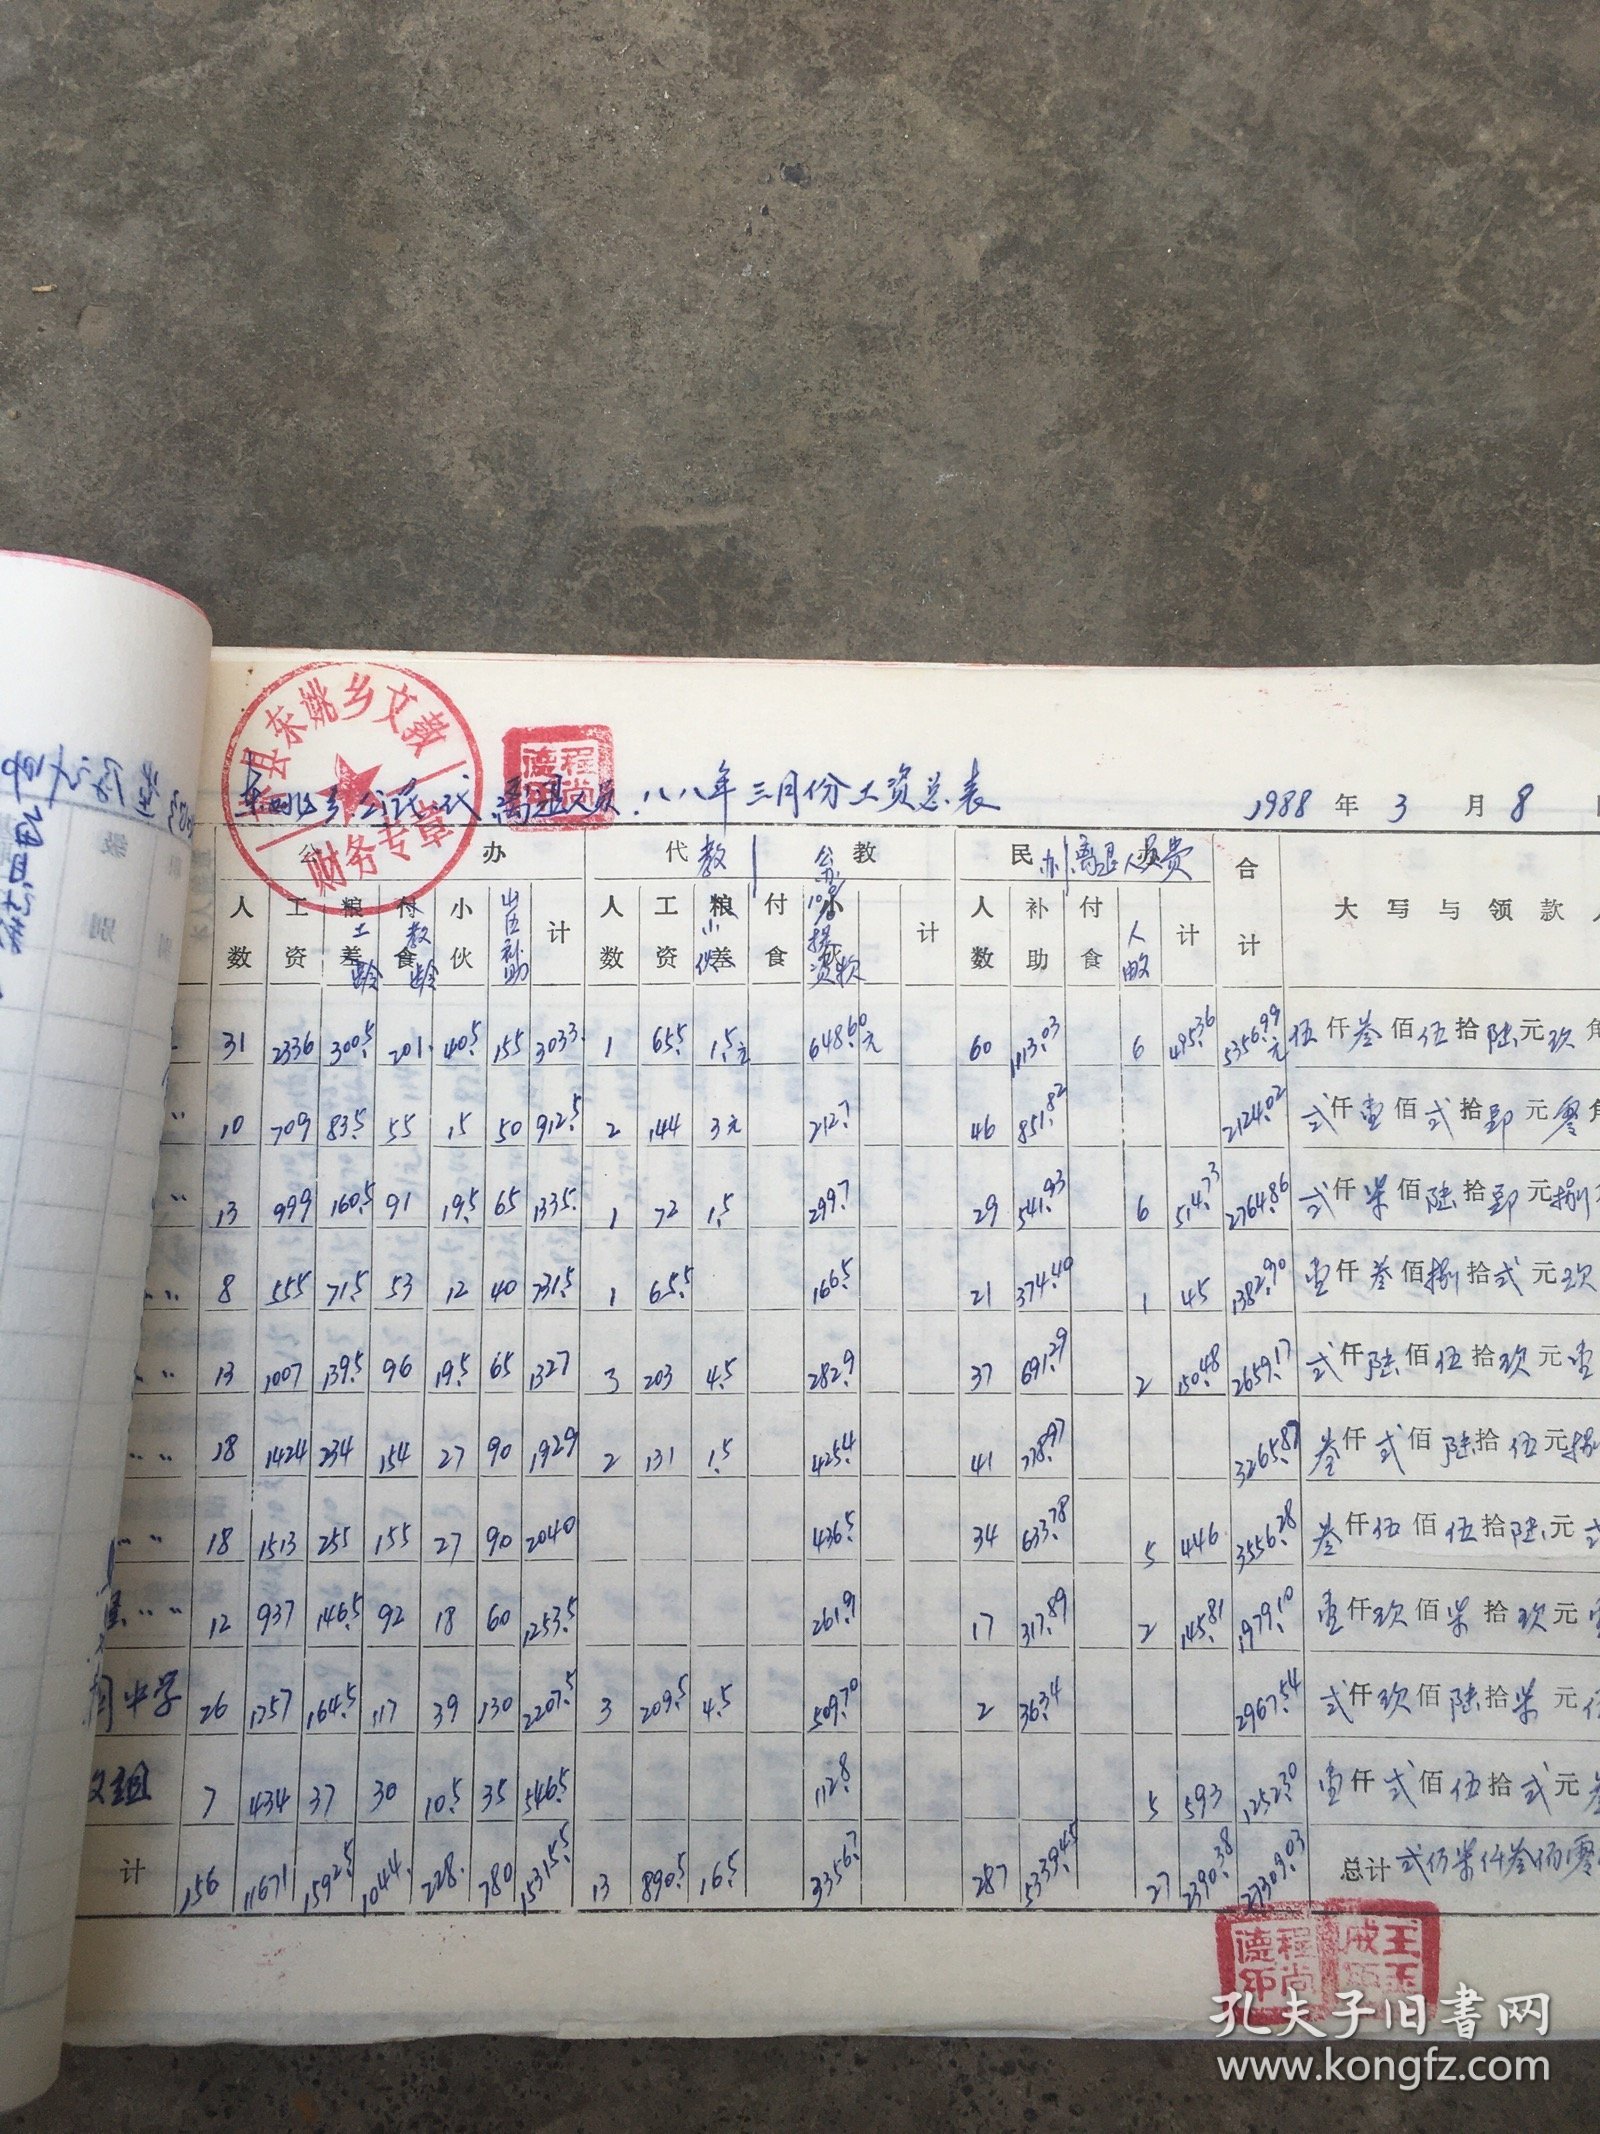 县东姚乡文教
财务专章
程尚德印
东姚乡公民代离退人员八八年三月份工资总表
1988 年 3 月 8
公 办 代教 公教 民办 离退人员费 合计 大写与领款人
人数 工资 土龄 教龄 小伙 山区补助 计 人数 工资 小伙 付食 计 人数 补助 付食 人数 计
31 2336 300.5 201. 40.5 155 3033. 1 65.5 1.5元 648.60元 60 1113.03 6 495.36 5356.99元 伍仟叁佰伍拾陆元玖角
10 709 83.5 55 15 50 912.5 2 144 3元 212.7 46 851.82 2124.02 弍仟壹佰弍拾肆元零角
13 999 160.5 91 19.5 65 1335. 1 72 1.5 299.7 29 541.93 6 514.73 2764.86 弍仟柒佰陆拾肆元捌
8 555 71.5 53 12 40 731.5 1 65.5 166.5 21 374.40 1 45 1382.90 壹仟叁佰捌拾弍元玖
13 1007 139.5 96 19.5 65 1327 3 203 4.5 282.9 37 691.29 2 150.48 2659.17 弍仟陆佰伍拾玖元壹
18 1424 234 154 27 90 1929 2 131 1.5 425.4 41 778.97 3265.87 叁仟弍佰陆拾伍元捌
18 1513 255 155 27 90 2040 436.5 34 633.78 5 446 3556.28 叁仟伍佰伍拾陆元弍
12 937 146.5 92 18 60 1253.5 261.9 17 317.89 2 145.81 1979.10 壹仟玖佰柒拾玖元壹
中学 26 1757 164.5 117 39 130 2207.5 3 209.5 4.5 509.70 2 36.34 2967.54 弍仟玖佰陆拾柒元伍
组 7 434 37 30 10.5 35 546.5 112.8 5 593 1252.30 壹仟弍佰伍拾弍元叁
计 156 11671 1592.5 1044. 228. 780 15315.5 13 890.5 16.5 3356.7 287 5339.45 27 2390.38 27309.03 总计 弍万柒仟叁佰零
程尚德印
孔夫子旧书网
www.kongfz.com